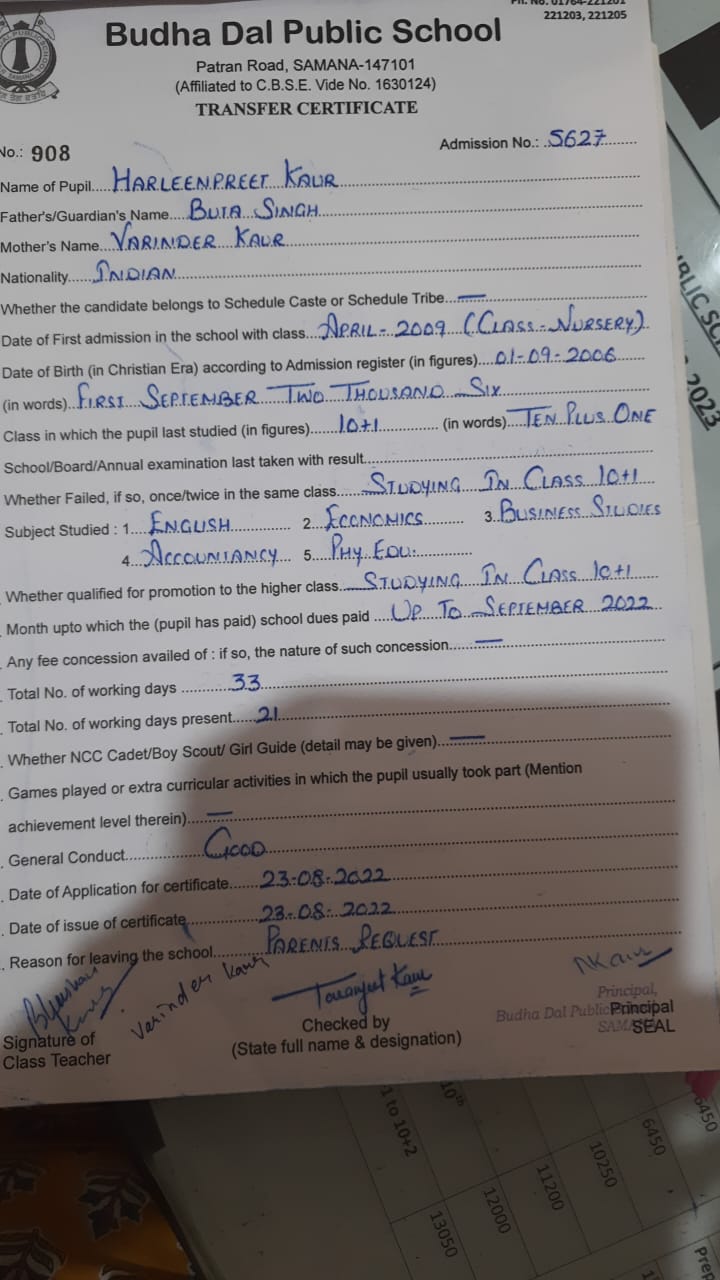 Ph. No. 01764-221201
221203, 221205
Budha Dal Public School
Patran Road, SAMANA-147101
(Affiliated to C.B.S.E. Vide No. 1630124)
TRANSFER CERTIFICATE
No.: 908 Admission No.: 5627
Name of Pupil HARLEENPREET KAUR
Father's/Guardian's Name BUTA SINGH
Mother's Name VARINDER KAUR
Nationality INDIAN
Whether the candidate belongs to Schedule Caste or Schedule Tribe —
Date of First admission in the school with class APRIL-2009 (CLASS-NURSERY)
Date of Birth (in Christian Era) according to Admission register (in figures) 01-09-2006
(in words) FIRST SEPTEMBER TWO THOUSAND SIX
Class in which the pupil last studied (in figures) 10+1 (in words) TEN PLUS ONE
School/Board/Annual examination last taken with result
Whether Failed, if so, once/twice in the same class STUDYING IN CLASS 10+1
Subject Studied : 1. ENGLISH 2. ECONOMICS 3. BUSINESS STUDIES
4. ACCOUNTANCY 5. PHY. EDU.
Whether qualified for promotion to the higher class STUDYING IN CLASS 10+1
Month upto which the (pupil has paid) school dues paid UP TO SEPTEMBER 2022
Any fee concession availed of : if so, the nature of such concession —
Total No. of working days 33
Total No. of working days present 21
Whether NCC Cadet/Boy Scout/ Girl Guide (detail may be given) —
Games played or extra curricular activities in which the pupil usually took part (Mention
achievement level therein) —
General Conduct GOOD
Date of Application for certificate 23-08-2022
Date of issue of certificate 23-08-2022
Reason for leaving the school PARENTS REQUEST
Varinder Kaur
Taranjeet Kaur
Signature of
Class Teacher
Checked by
(State full name & designation)
Principal,
Budha Dal Public
SAMANA
Principal
SEAL
BLIC SC
2023
1 to 10+2
10th
13050
12000
11200
10250
6450
6450